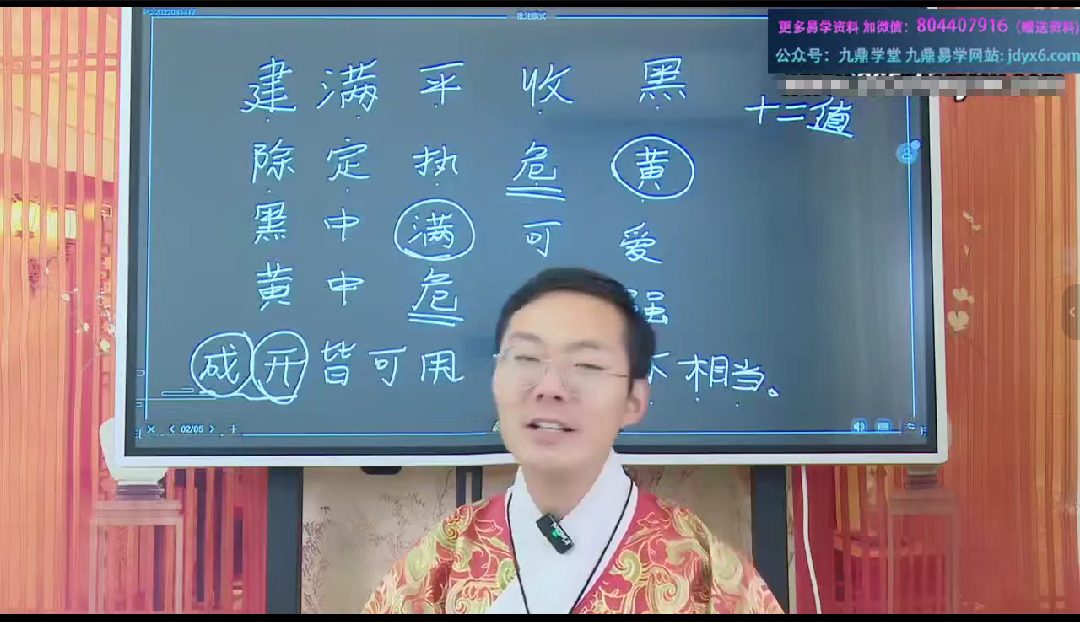 PC2022081417
批注模式
更多易学资料 加微信：804407916（赠送资料）
公众号：九鼎学堂 九鼎易学网站: jdyx6.com
建 满 平 收 黑
十二值
除 定 执 危 黄
黑 中 满 可 爱
黄 中 危 强
成 开 皆 可 用 不 相当。
02/05